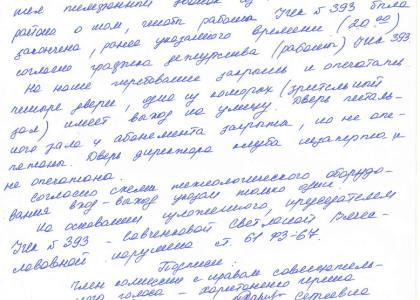 телефонный звонок
района о том, чтобы работа Уик № 393 была
закончена, ранее указанного времени (20 00)
согласно графика дежурства (работы) Уик 393
На наше требование закрыть и опечатать
четыре двери, одна из которых (зрительный
зал) имеет выход на улицу. Дверь читаль-
ного зала и абонемента закрыта, но не опе-
чатаны. Дверь директора клуба незаперта и
не опечатана.
Согласно схемы технологического оборудо-
вания вход-выход указан только один.
На основании изложенного, председателем
Уик № 393 - Савченковой Светланой Вячес-
лавовной нарушена ст. 61 ФЗ-67.
Подписи:
Член комиссии с правом совещатель-
ного голоса - Харитоненко